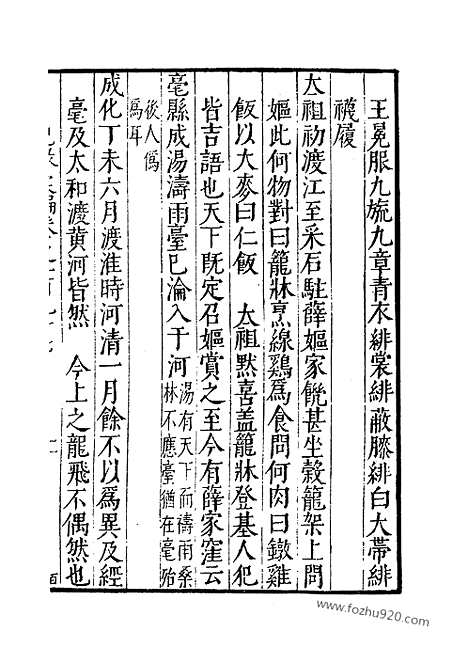 王冕服九旒九章青衣緋裳緋蔽膝緋白大帶緋
襪履
太祖初渡江至采石駐薛嫗家饑甚坐穀籠架上問
嫗此何物對曰籠牀烹線鷄爲食問何肉曰鐓雞
飯以大麥曰仁飯 太祖默喜盖籠牀登基人犯
皆吉語也天下既定召嫗賞之至今有薛家窪云
亳縣成湯濤雨臺已淪入于河湯有天下而禱雨桑林不應臺猶在亳殆
後人僞爲耳
成化丁未六月渡淮時河清一月餘不以爲異及經
亳及太和渡黄河皆然 今上之龍飛不偶然也
www.fozhu920.com